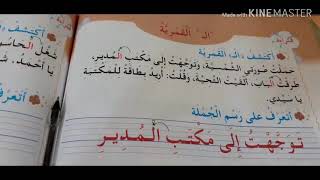 Made with KINEMASTER
"الـ" القمرية
أكتشف "الـ" القمرية
حملت صورتي الشمسية، وتوجهت إلى مكتب المدير.
طرقت الباب، ألقيت التحية، وقلت: أريد بطاقة للمكتبة
يا سيدي.
أتعرف على رسم الجملة
تَوَجَّهْتُ إِلَى مَكْتَبِ الْمُدِيرِ
أكتشف
شغل الحاسو
يا أحمد،
أتعرف